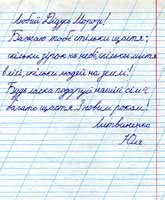 Любий Дідусь Мороз!
Бажаю тобі стільки щастя,
скільки зірок на небі, скільки листя
в лісі, скільки людей на землі!
Будь ласка подаруй нашій сім'ї
багато щастя. З новим роком!
Литвиненко
Юля